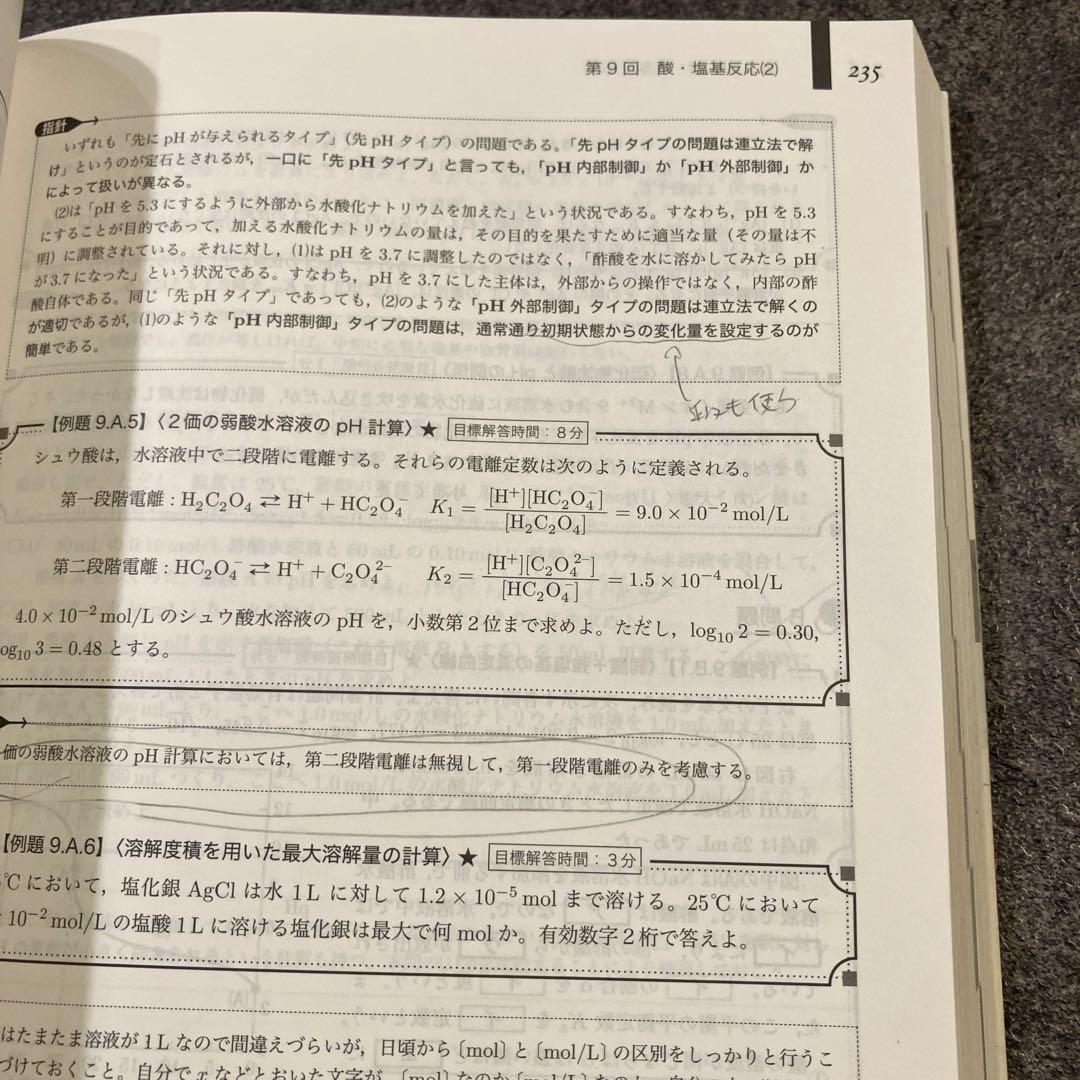 第9回 酸・塩基反応(2) 235
指針
いずれも「先に pH が与えられるタイプ」(先 pH タイプ) の問題である。「先 pH タイプの問題は連立法で解
け」というのが定石とされるが,一口に「先 pH タイプ」と言っても,「pH 内部制御」か「pH 外部制御」か
によって扱いが異なる。
(2)は「pH を 5.3 にするように外部から水酸化ナトリウムを加えた」という状況である。すなわち,pH を 5.3
にすることが目的であって,加える水酸化ナトリウムの量は,その目的を果たすために適当な量(その量は不
明)に調整されている。それに対し,(1)は pH を 3.7 に調整したのではなく,「酢酸を水に溶かしてみたら pH
が 3.7 になった」という状況である。すなわち,pH を 3.7 にした主体は,外部からの操作ではなく,内部の酢
酸自体である。同じ「先 pH タイプ」であっても,(2)のような「pH 外部制御」タイプの問題は連立法で解くの
が適切であるが,(1)のような「pH 内部制御」タイプの問題は,通常通り初期状態からの変化量を設定するのが
簡単である。
も使う
【例題 9.A.5】〈2価の弱酸水溶液の pH 計算〉★ 目標解答時間:8分
シュウ酸は,水溶液中で二段階に電離する。それらの電離定数は次のように定義される。
第一段階電離:H₂C₂O₄ ⇄ H⁺ + HC₂O₄⁻ K₁ = [H⁺][HC₂O₄⁻] / [H₂C₂O₄] = 9.0 × 10⁻² mol/L
第二段階電離:HC₂O₄⁻ ⇄ H⁺ + C₂O₄²⁻ K₂ = [H⁺][C₂O₄²⁻] / [HC₂O₄⁻] = 1.5 × 10⁻⁴ mol/L
4.0 × 10⁻² mol/L のシュウ酸水溶液の pH を,小数第2位まで求めよ。ただし,log₁₀ 2 = 0.30,
og₁₀ 3 = 0.48 とする。
価の弱酸水溶液の pH 計算においては,第二段階電離は無視して,第一段階電離のみを考慮する。
【例題 9.A.6】〈溶解度積を用いた最大溶解量の計算〉★ 目標解答時間:3分
℃において,塩化銀 AgCl は水 1 L に対して 1.2 × 10⁻⁵ mol まで溶ける。25℃において
10⁻² mol/L の塩酸 1 L に溶ける塩化銀は最大で何 mol か。有効数字2桁で答えよ。
はたまたま溶液が 1 L なので間違えづらいが,日頃から〔mol〕と〔mol/L〕の区別をしっかりと行うこ
づけておくこと。自分で x などとおいた文字が,〔mol〕なのか〔mol/L〕なのか